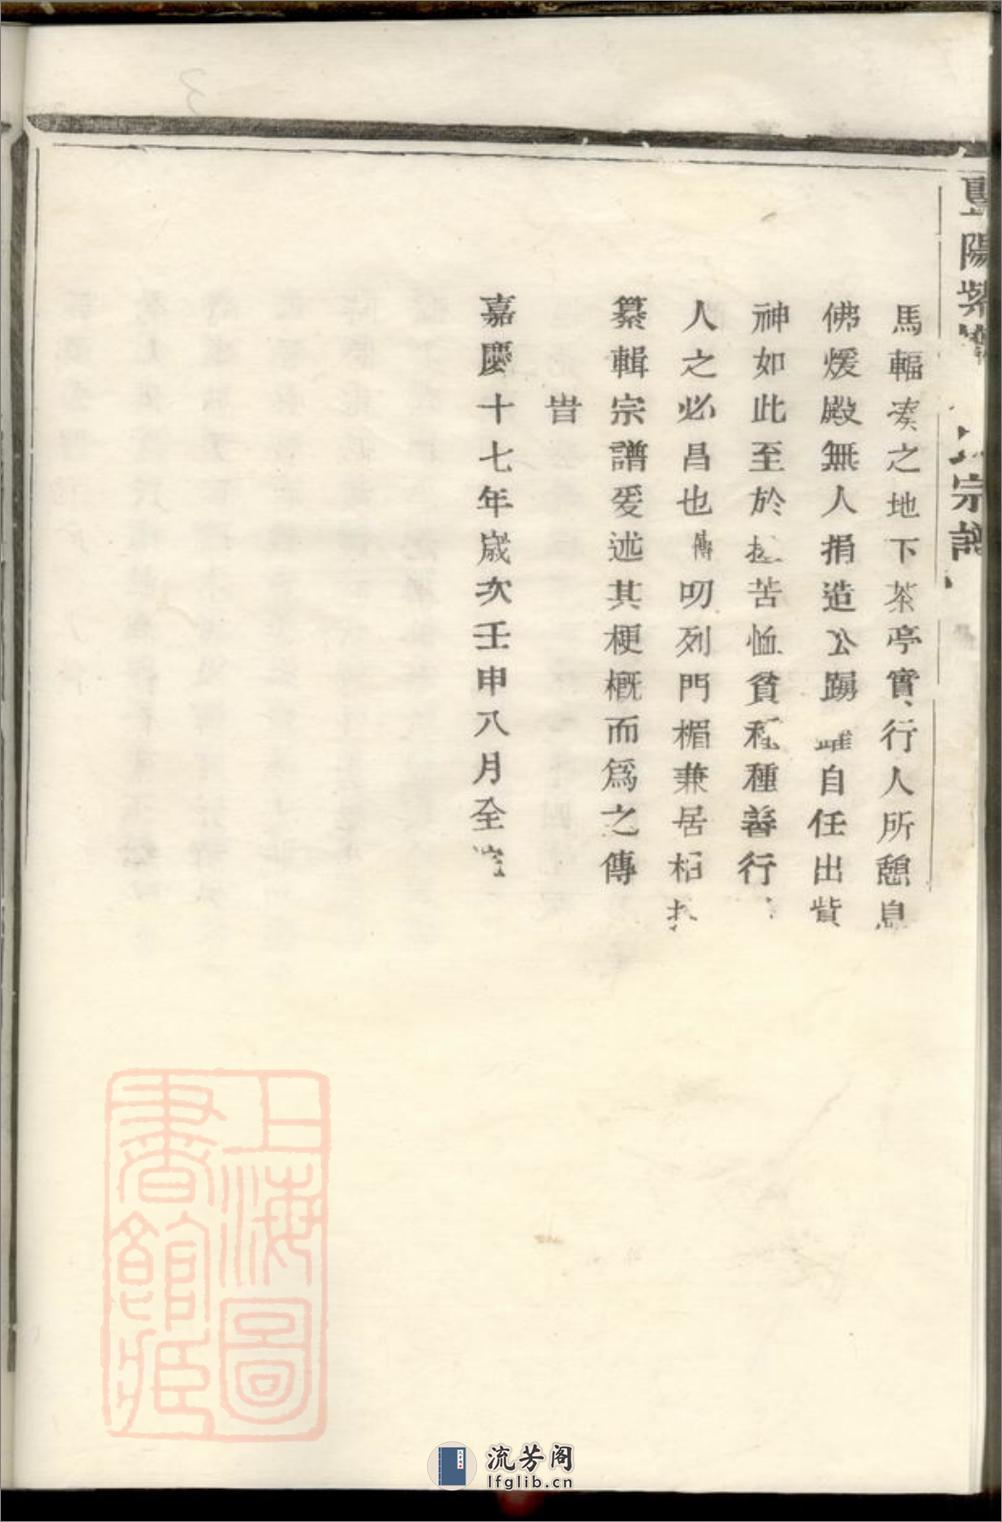 陽紫
宗譜
馬輻凑之地下茶亭實行人所憩息
佛煖殿無人捐造公踴躍自任出貲
神如此至於拯苦恤貧種種善行
人之必昌也傳叨列門楣兼居桓
纂輯宗譜爰述其梗概而爲之傳
旹
嘉慶十七年歲次壬申八月全
上海圖書館藏
流芳阁
lfglib.cn